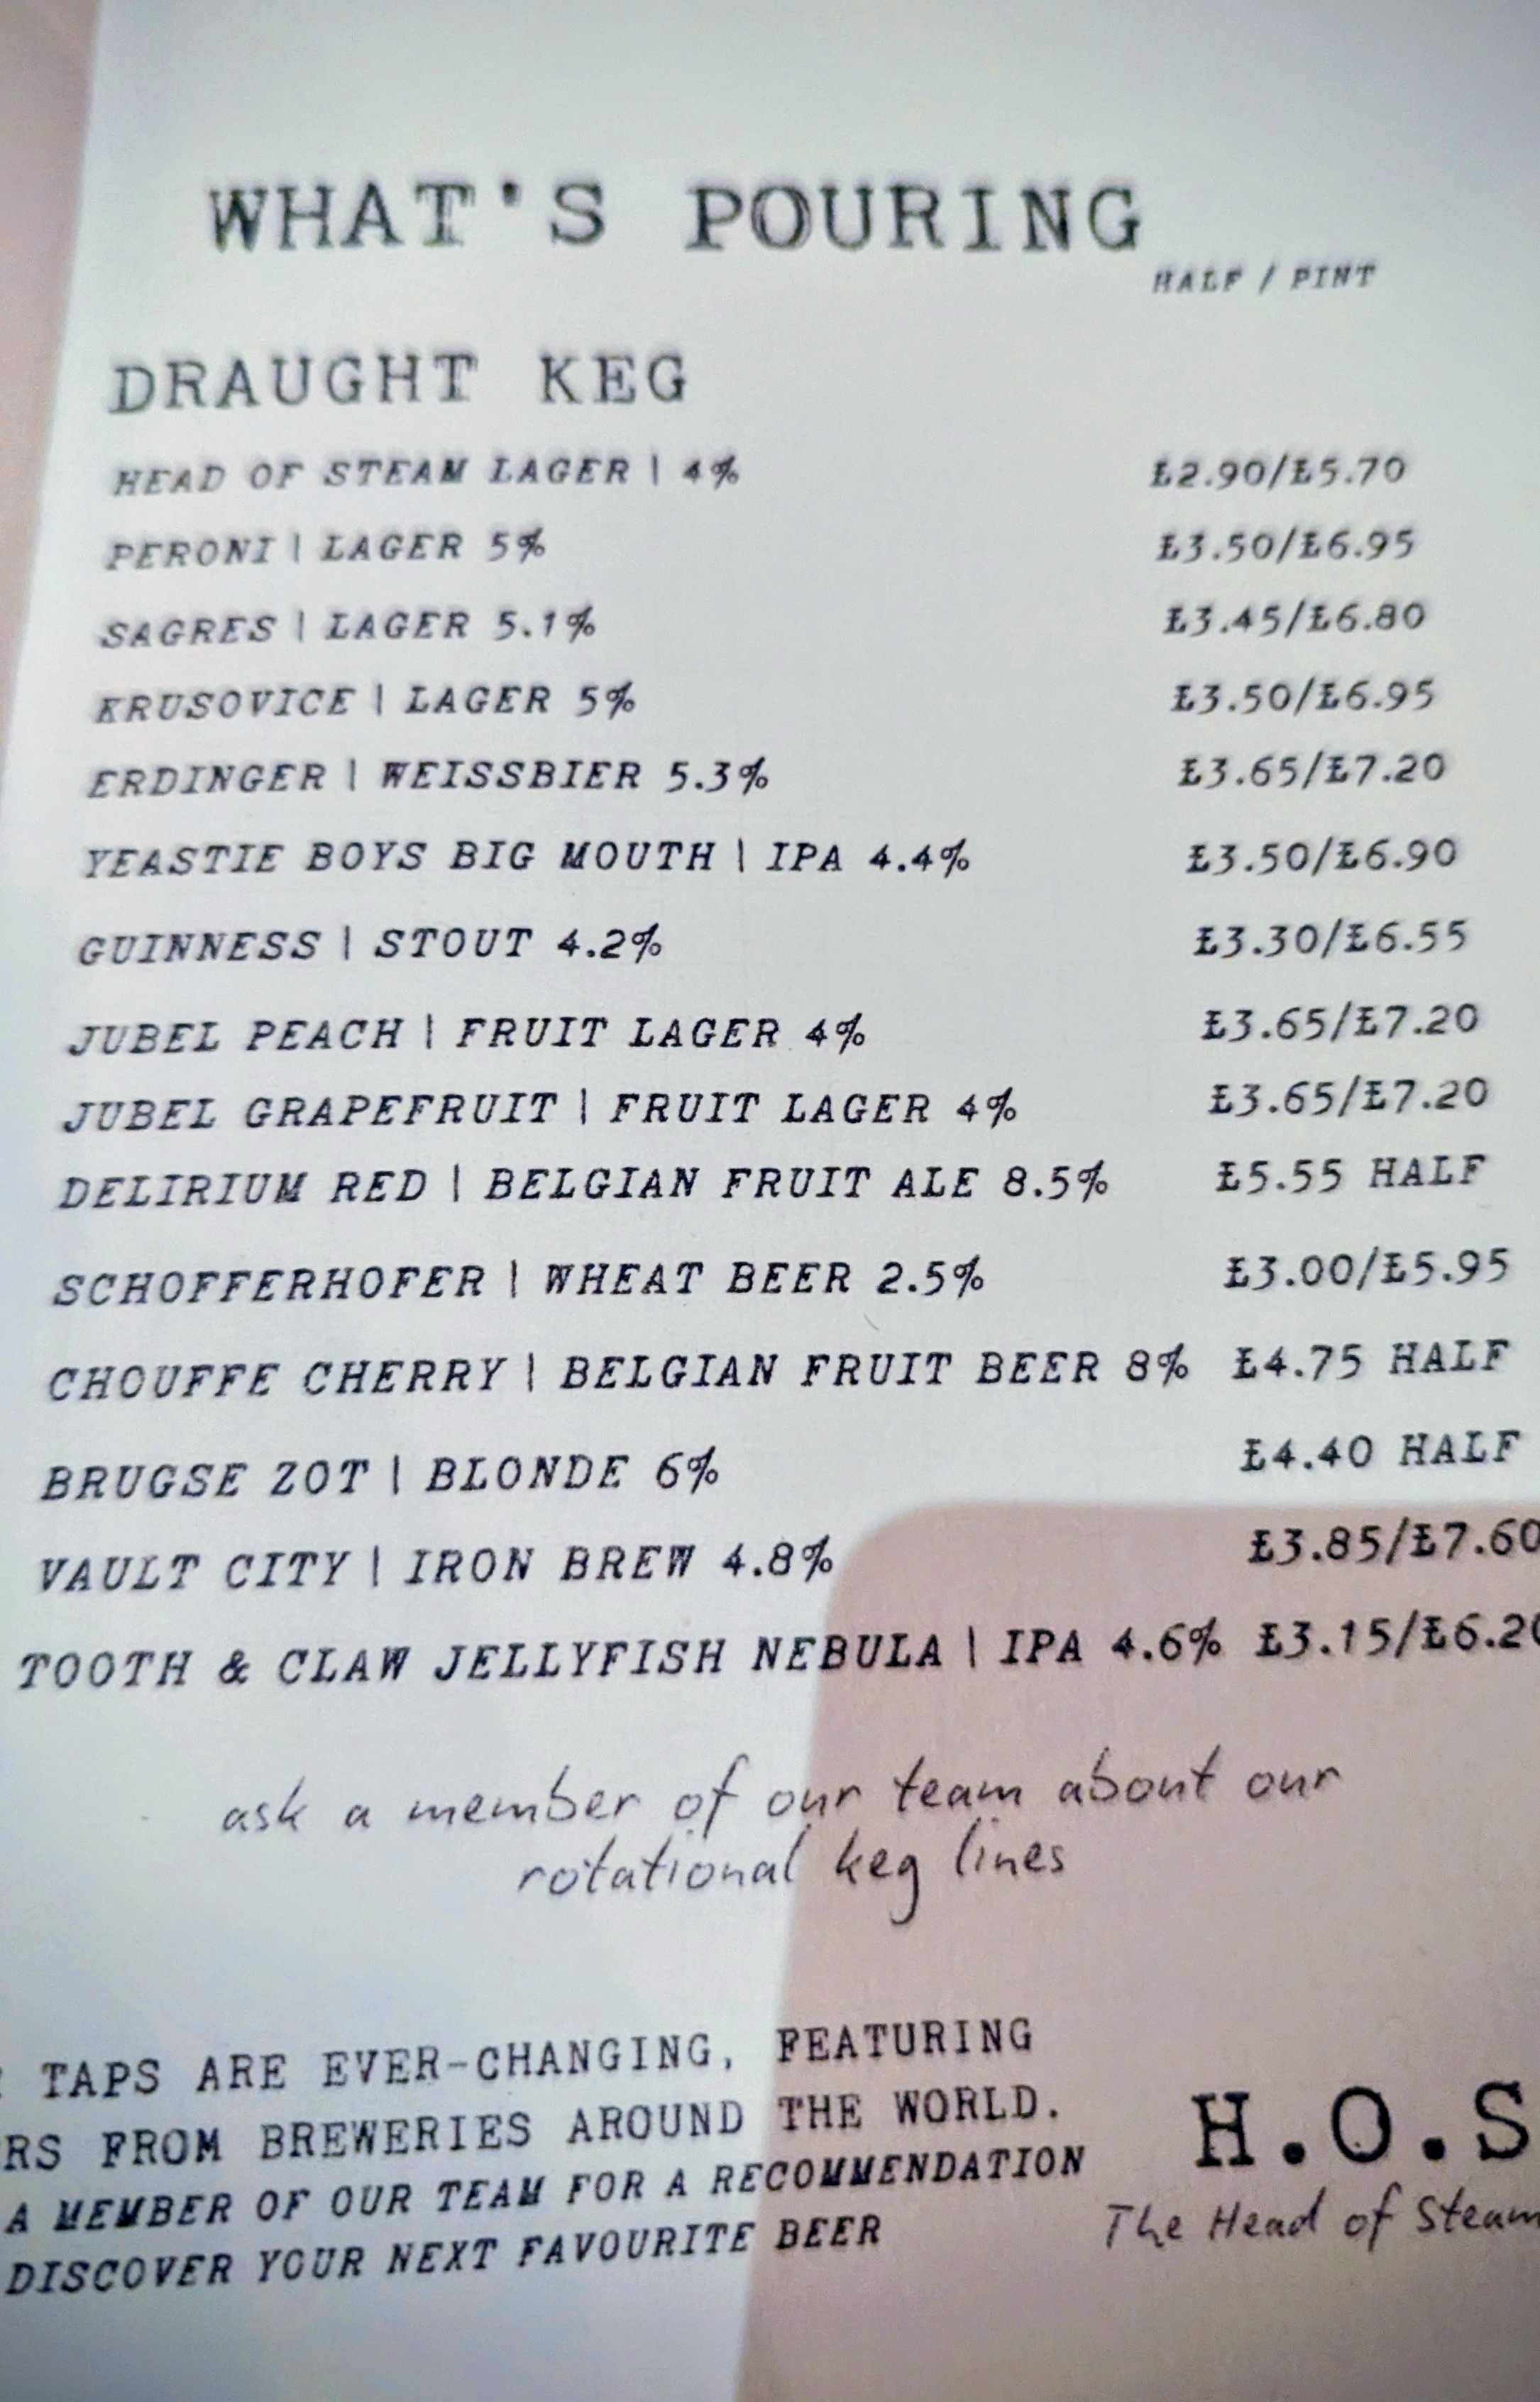 WHAT'S POURING
HALF / PINT
DRAUGHT KEG
HEAD OF STEAM LAGER | 4% £2.90/£5.70
PERONI | LAGER 5% £3.50/£6.95
SAGRES | LAGER 5.1% £3.45/£6.80
KRUSOVICE | LAGER 5% £3.50/£6.95
ERDINGER | WEISSBIER 5.3% £3.65/£7.20
YEASTIE BOYS BIG MOUTH | IPA 4.4% £3.50/£6.90
GUINNESS | STOUT 4.2% £3.30/£6.55
JUBEL PEACH | FRUIT LAGER 4% £3.65/£7.20
JUBEL GRAPEFRUIT | FRUIT LAGER 4% £3.65/£7.20
DELIRIUM RED | BELGIAN FRUIT ALE 8.5% £5.55 HALF
SCHOFFERHOFER | WHEAT BEER 2.5% £3.00/£5.95
CHOUFFE CHERRY | BELGIAN FRUIT BEER 8% £4.75 HALF
BRUGSE ZOT | BLONDE 6% £4.40 HALF
VAULT CITY | IRON BREW 4.8% £3.85/£7.60
TOOTH & CLAW JELLYFISH NEBULA | IPA 4.6% £3.15/£6.20
ask a member of our team about our
rotational keg lines
TAPS ARE EVER-CHANGING, FEATURING
RS FROM BREWERIES AROUND THE WORLD.
A MEMBER OF OUR TEAM FOR A RECOMMENDATION
DISCOVER YOUR NEXT FAVOURITE BEER
H.O.S
The Head of Steam